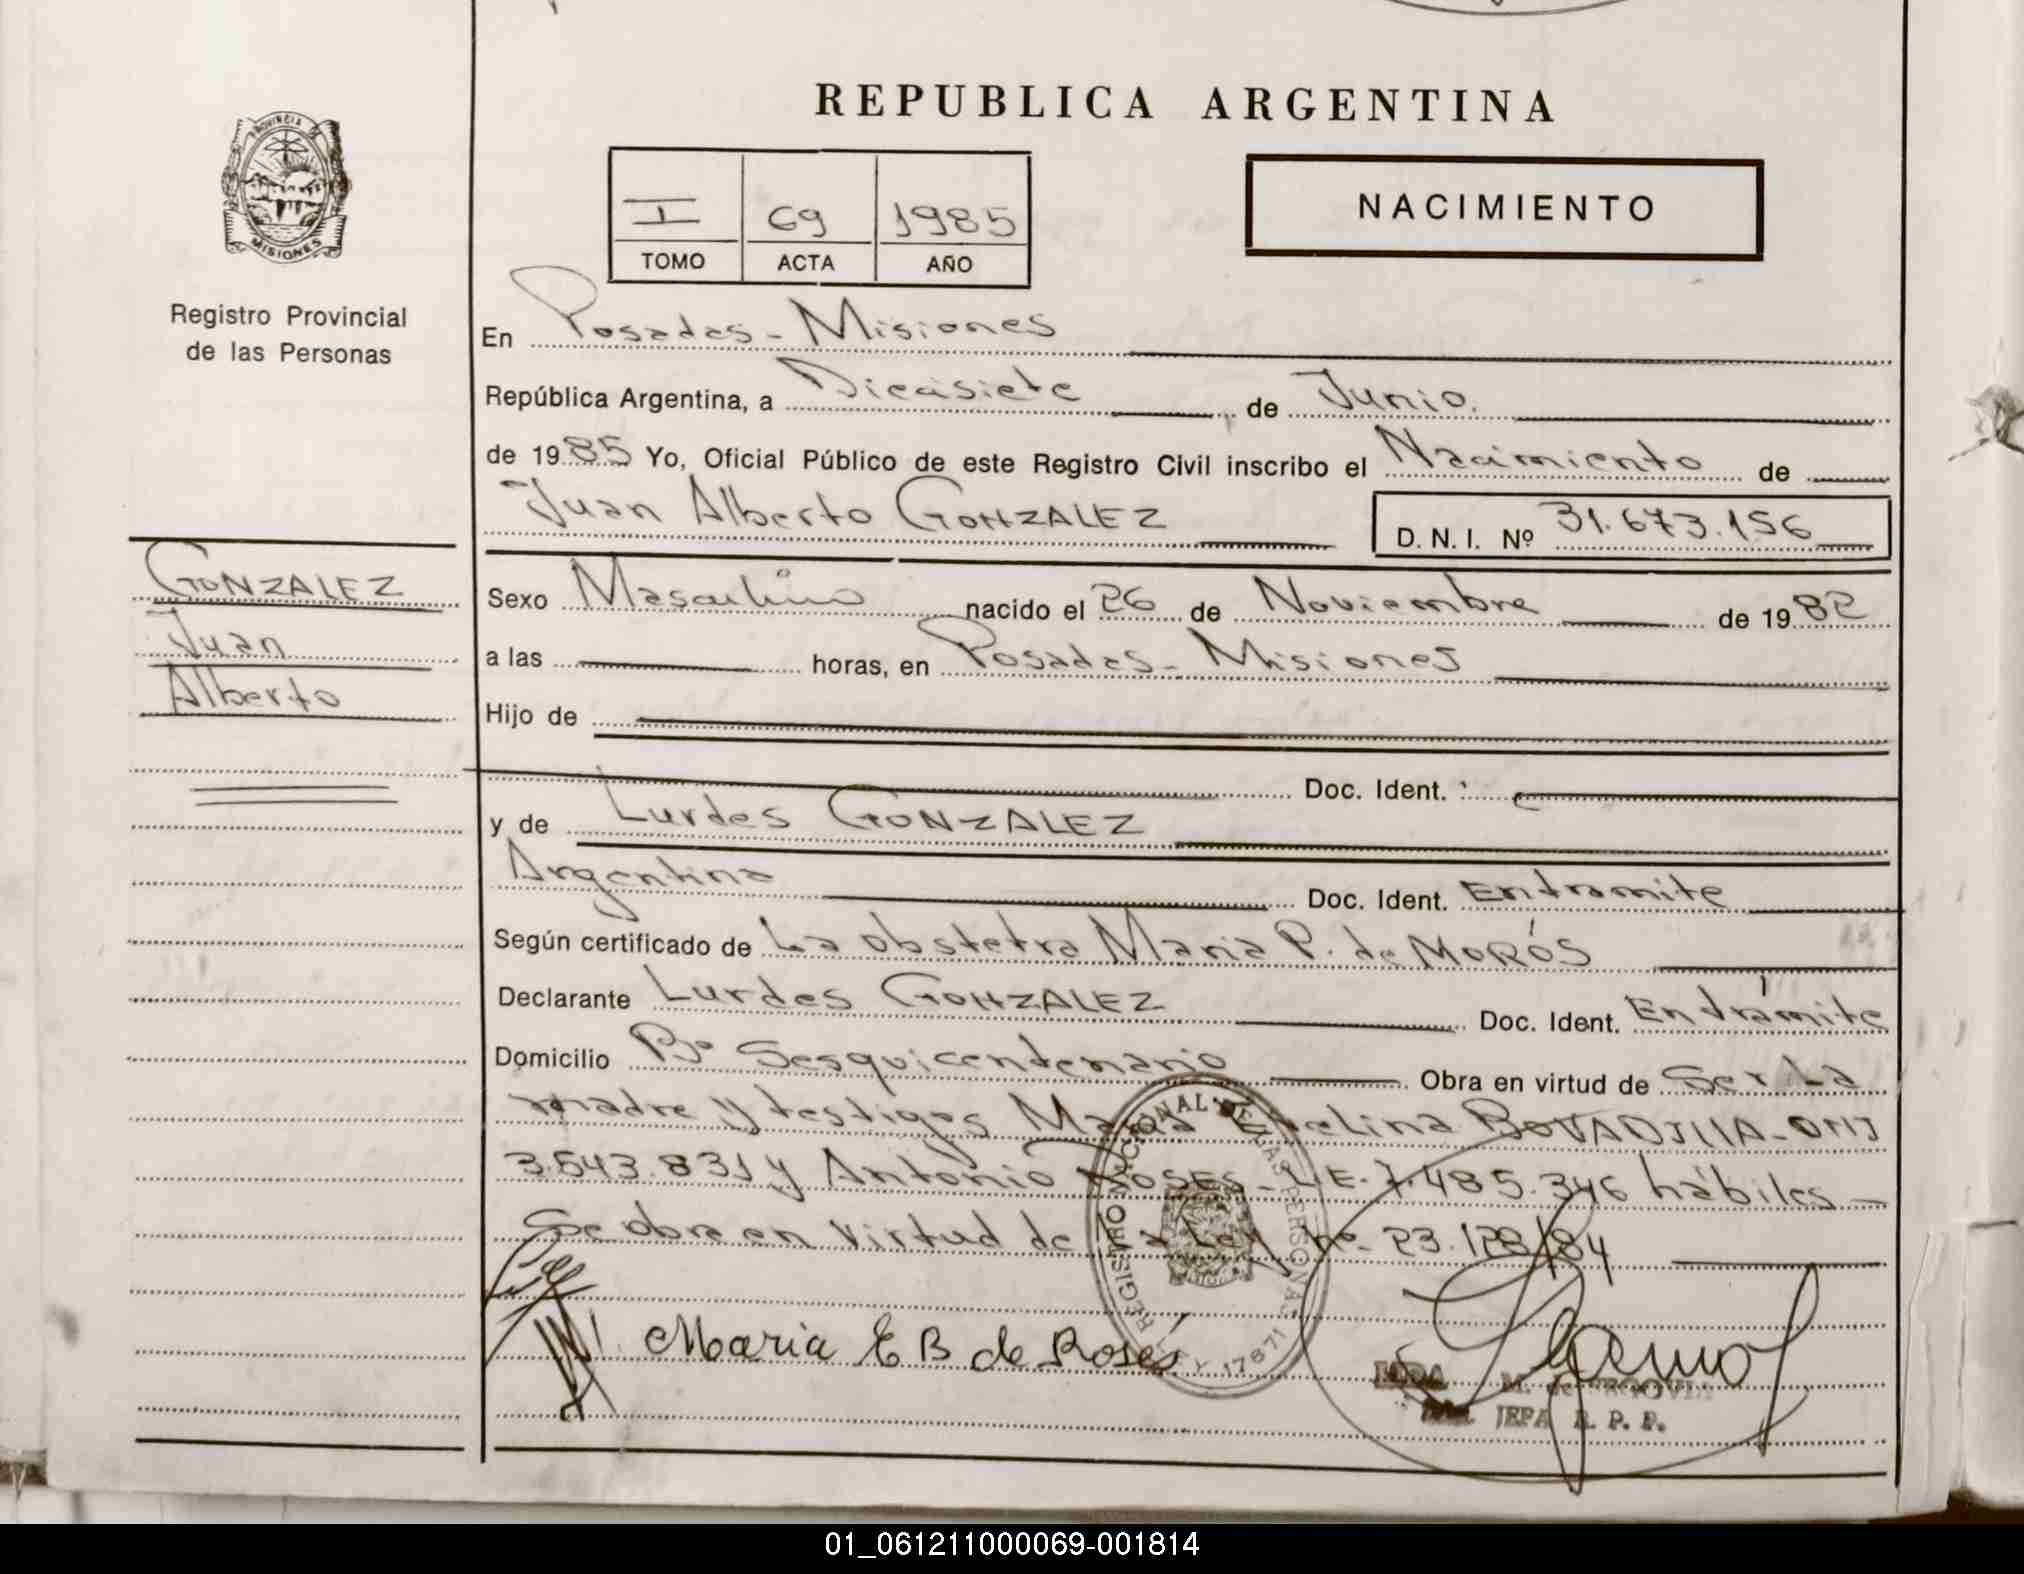 REPUBLICA ARGENTINA
PROVINCIA DE
MISIONES
Registro Provincial
de las Personas
I 69 1985
TOMO ACTA AÑO
NACIMIENTO
En Posadas - Misiones
República Argentina, a Diecisiete de Junio.
de 1985 Yo, Oficial Público de este Registro Civil inscribo el Nacimiento de
Juan Alberto GONZALEZ D. N. I. Nº 31.673.156
GONZALEZ
Juan
Alberto
Sexo Masculino nacido el 26 de Noviembre de 1982
a las horas, en Posadas - Misiones
Hijo de
Doc. Ident.
y de Lurdes GONZALEZ
Argentina Doc. Ident. Entramite
Según certificado de La obstetra Maria P. de MORÓS
Declarante Lurdes GONZALEZ Doc. Ident. En trámite
Domicilio Bº Sesquicentenario Obra en virtud de Ser La
madre y testigos Maria Evelina BOVADILLA - DNI
3.543.831 y Antonio ROSES - L.E. 7.485.346 hábiles -
Se obra en virtud de la Ley Nº 23.128/84
REGISTRO NACIONAL DE LAS PERSONAS
LEY 17671
Maria E B de Roses
M. de SEGOVIA
JEFA R. P. P.
01_061211000069-001814